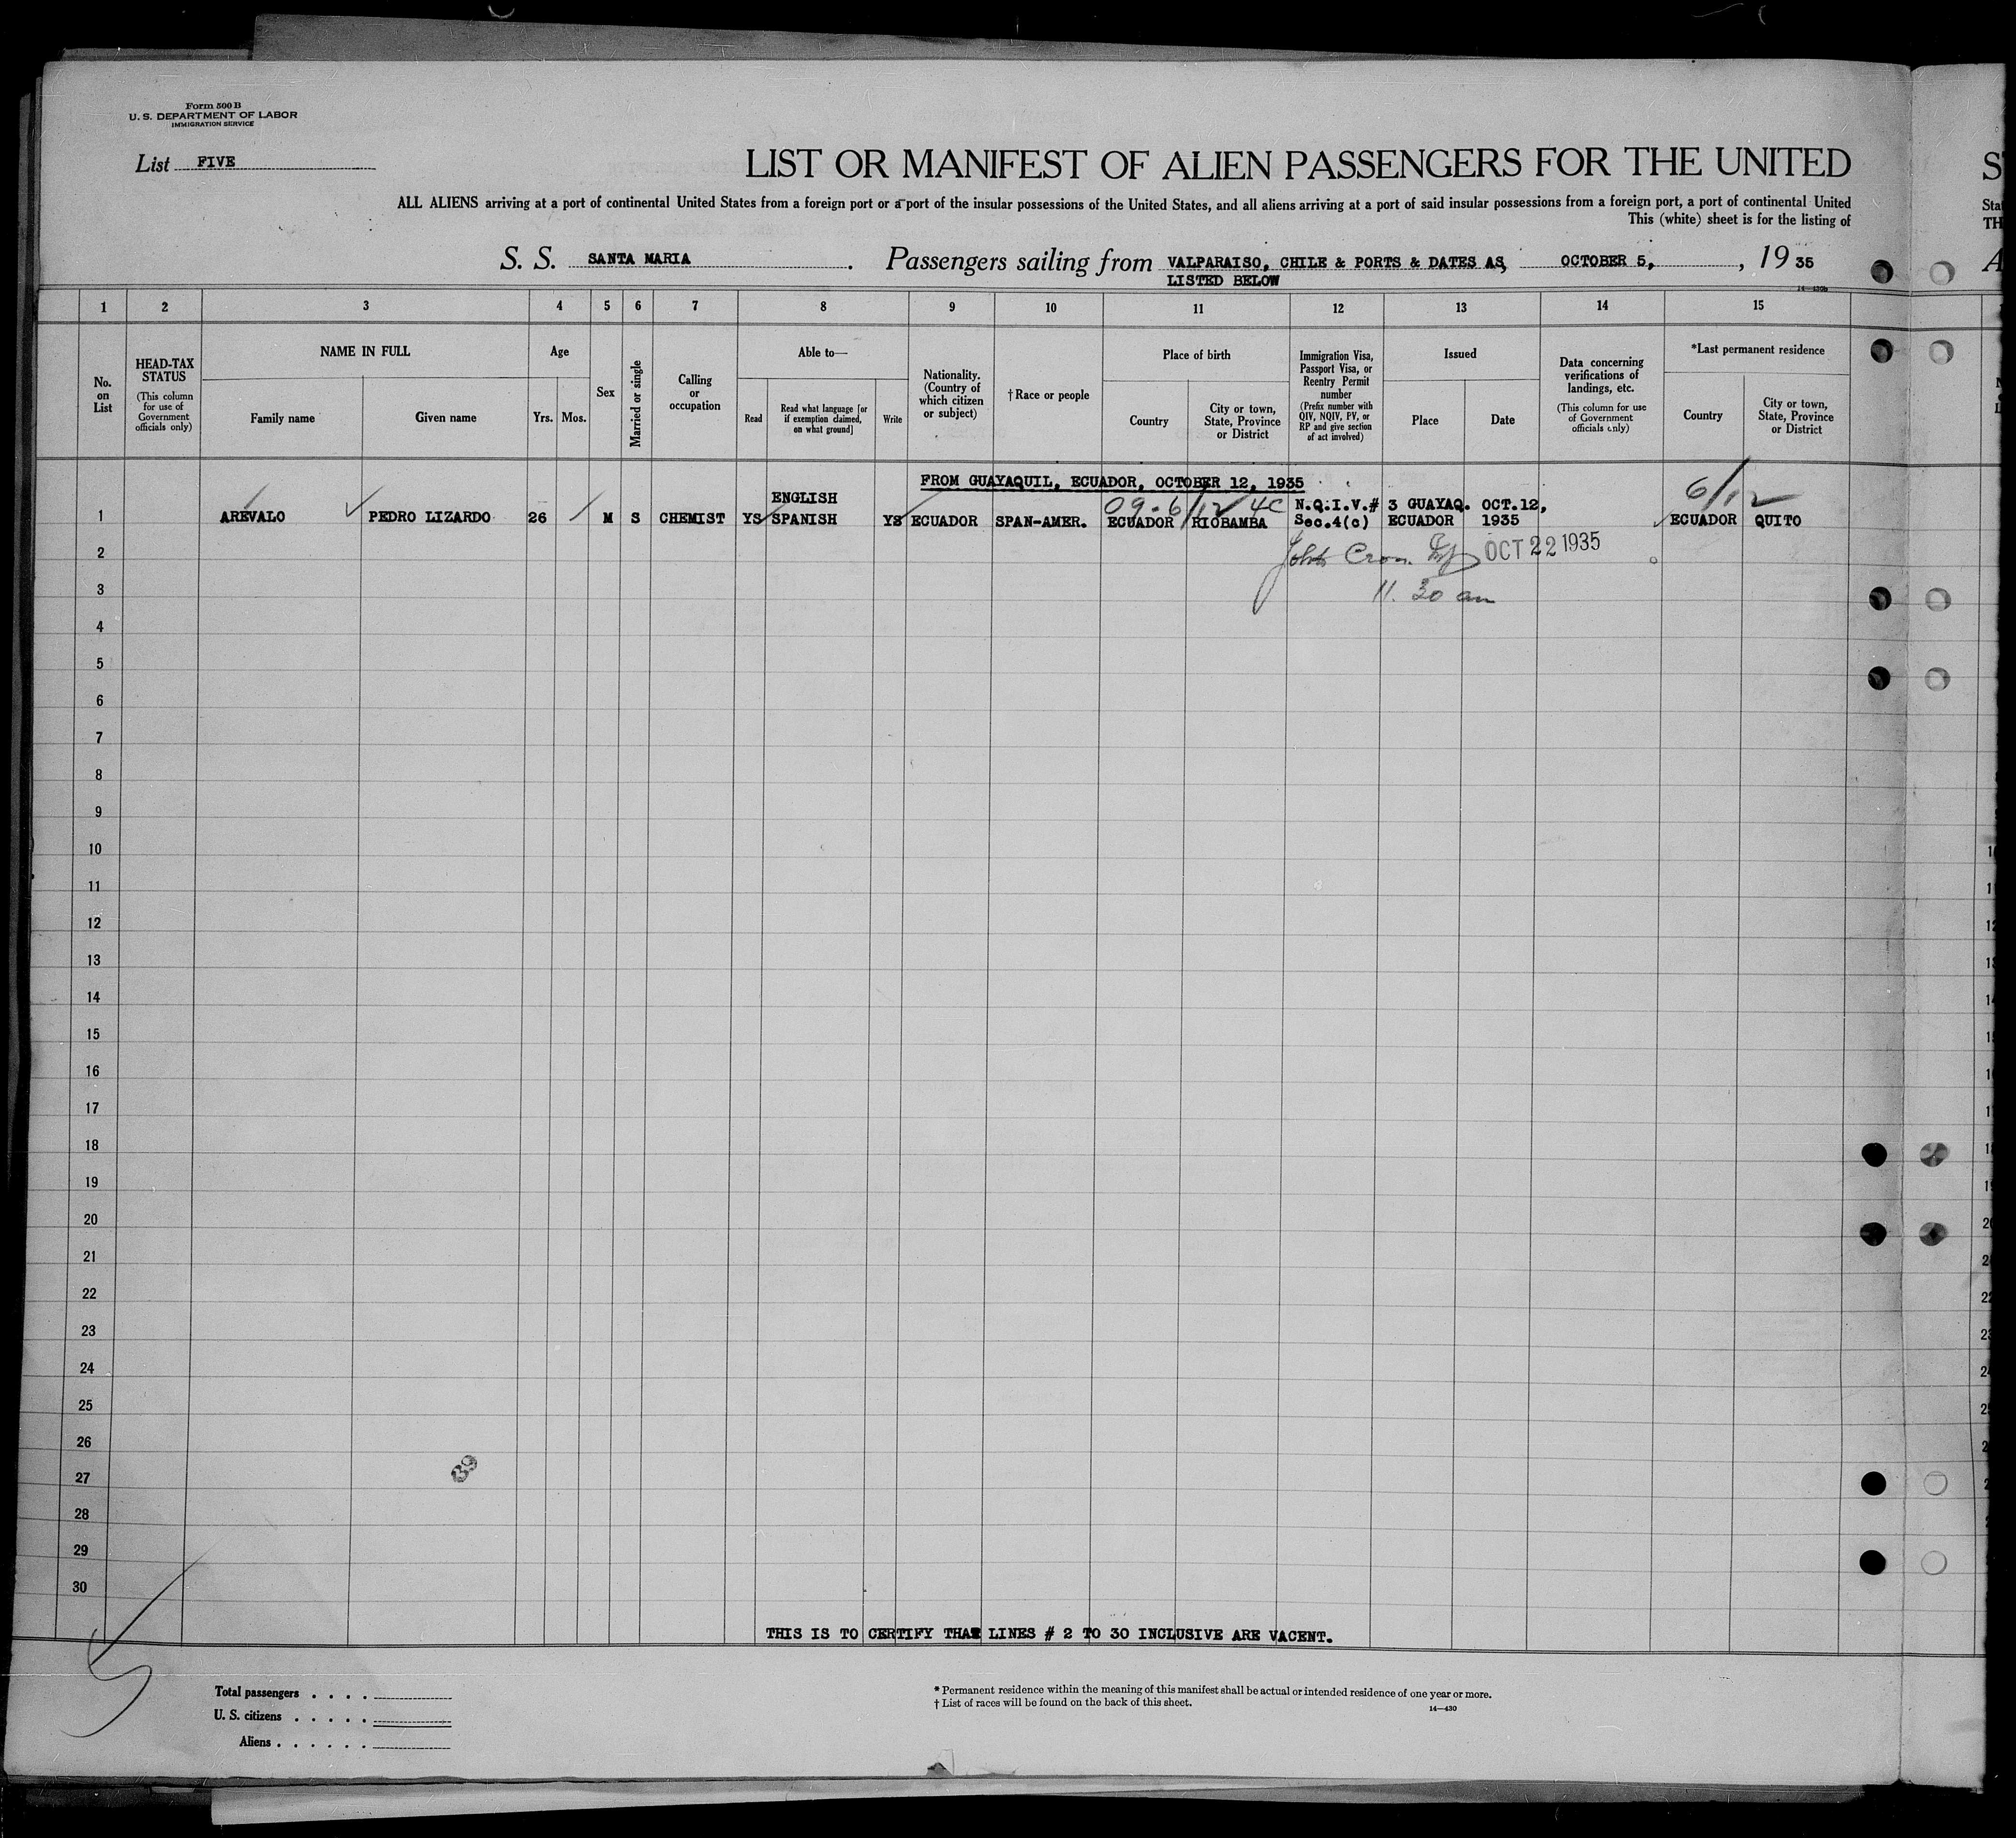 Form 500 B
U. S. DEPARTMENT OF LABOR
IMMIGRATION SERVICE
List FIVE
LIST OR MANIFEST OF ALIEN PASSENGERS FOR THE UNITED
S
ALL ALIENS arriving at a port of continental United States from a foreign port or a port of the insular possessions of the United States, and all aliens arriving at a port of said insular possessions from a foreign port, a port of continental United
Stat
This (white) sheet is for the listing of
TH
S. S. SANTA MARIA. Passengers sailing from VALPARAISO, CHILE & PORTS & DATES AS, OCTOBER 5, , 19 35
LISTED BELOW
A
14—430b
1 2 3 4 5 6 7 8 9 10 11 12 13 14 15
No. on List
HEAD-TAX STATUS
(This column for use of Government officials only)
NAME IN FULL
Family name
Given name
Age
Yrs.
Mos.
Sex
Married or single
Calling or occupation
Able to—
Read
Read what language [or if exemption claimed, on what ground]
Write
Nationality. (Country of which citizen or subject)
† Race or people
Place of birth
Country
City or town, State, Province or District
Immigration Visa, Passport Visa, or Reentry Permit number
(Prefix number with QIV, NQIV, PV, or RP and give section of act involved)
Issued
Place
Date
Data concerning verifications of landings, etc.
(This column for use of Government officials only)
*Last permanent residence
Country
City or town, State, Province or District
FROM GUAYAQUIL, ECUADOR, OCTOBER 12, 1935
ENGLISH 09-6/12 4C N.Q.I.V.# 3 GUAYAQ. OCT.12, 6/12
1 AREVALO PEDRO LIZARDO 26 M S CHEMIST YS SPANISH YS ECUADOR SPAN-AMER. ECUADOR RIOBAMBA Sec.4(c) ECUADOR 1935 ECUADOR QUITO
2 OCT 22 1935
3 11.30 am
4
5
6
7
8
9
10
11
12
13
14
15
16
17
18
19
20
21
22
23
24
25
26
27 39
28
29
30
THIS IS TO CERTIFY THAT LINES # 2 TO 30 INCLUSIVE ARE VACENT.
5
Total passengers . . . .
U. S. citizens . . . . .
Aliens . . . . . .
* Permanent residence within the meaning of this manifest shall be actual or intended residence of one year or more.
† List of races will be found on the back of this sheet.
14—430